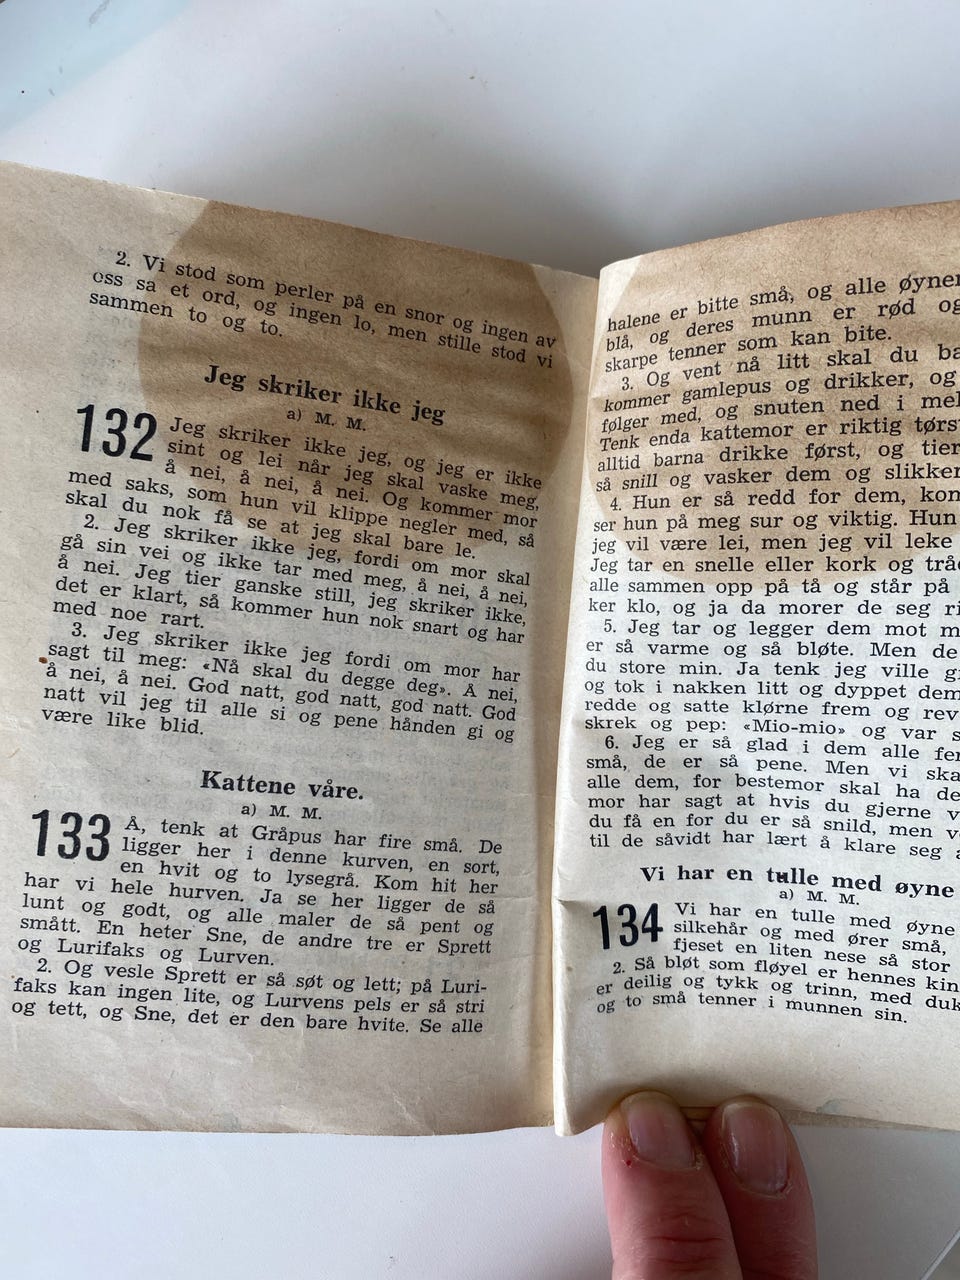 2. Vi stod som perler på en snor og ingen av
oss sa et ord, og ingen lo, men stille stod vi
sammen to og to.
Jeg skriker ikke jeg
a) M. M.
132 Jeg skriker ikke jeg, og jeg er ikke
sint og lei når jeg skal vaske meg,
å nei, å nei, å nei. Og kommer mor
med saks, som hun vil klippe negler med, så
skal du nok få se at jeg skal bare le.
2. Jeg skriker ikke jeg, fordi om mor skal
gå sin vei og ikke tar med meg, å nei, å nei,
å nei. Jeg tier ganske still, jeg skriker ikke,
det er klart, så kommer hun nok snart og har
med noe rart.
3. Jeg skriker ikke jeg fordi om mor har
sagt til meg: «Nå skal du degge deg». Å nei,
å nei, å nei. God natt, god natt, god natt. God
natt vil jeg til alle si og pene hånden gi og
være like blid.
Kattene våre.
a) M. M.
133 Å, tenk at Gråpus har fire små. De
ligger her i denne kurven, en sort,
en hvit og to lysegrå. Kom hit her
har vi hele hurven. Ja se her ligger de så
lunt og godt, og alle maler de så pent og
smått. En heter Sne, de andre tre er Sprett
og Lurifaks og Lurven.
2. Og vesle Sprett er så søt og lett; på Luri-
faks kan ingen lite, og Lurvens pels er så stri
og tett, og Sne, det er den bare hvite. Se alle
halene er bitte små, og alle øyner
blå, og deres munn er rød og
skarpe tenner som kan bite.
3. Og vent nå litt skal du ba
kommer gamlepus og drikker, og
følger med, og snuten ned i mel
Tenk enda kattemor er riktig tørst
alltid barna drikke først, og tier
så snill og vasker dem og slikker
4. Hun er så redd for dem, kom
ser hun på meg sur og viktig. Hun
jeg vil være lei, men jeg vil leke
Jeg tar en snelle eller kork og tråd
alle sammen opp på tå og står på
ker klo, og ja da morer de seg ri
5. Jeg tar og legger dem mot m
er så varme og så bløte. Men de
du store min. Ja tenk jeg ville g
og tok i nakken litt og dyppet dem
redde og satte klørne frem og rev
skrek og pep: «Mio-mio» og var s
6. Jeg er så glad i dem alle fer
små, de er så pene. Men vi ska
alle dem, for bestemor skal ha de
mor har sagt at hvis du gjerne v
du få en for du er så snild, men v
til de såvidt har lært å klare seg
Vi har en tulle med øyne
a) M. M.
134 Vi har en tulle med øyne
silkehår og med ører små,
fjeset en liten nese så stor
2. Så bløt som fløyel er hennes kin
er deilig og tykk og trinn, med duk
og to små tenner i munnen sin.